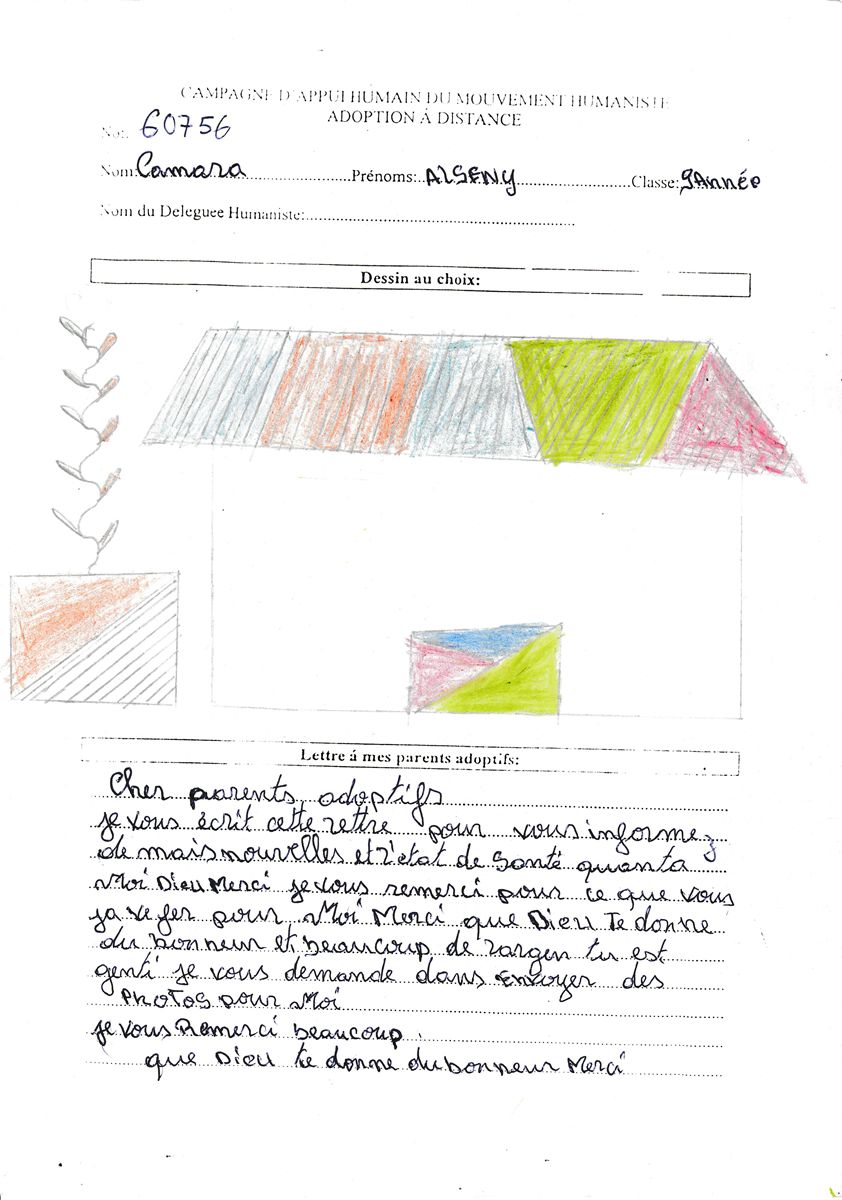 CAMPAGNE D'APPUI HUMAIN DU MOUVEMENT HUMANISTE
ADOPTION À DISTANCE
No: 60756
Nom: Camara Prénoms: ALSENY Classe: 9Année
Nom du Deleguee Humaniste:
Dessin au choix:
Lettre á mes parents adoptifs:
Cher parents adoptifs
je vous écrit cette lettre pour vous informez
de mais nouvelles et l'état de Santé quanta
Moi Dieu Merci je vous remerci pour ce que vous
pour Moi Merci que Dieu Te donne
du bonneur et beaucoup de largen tu est
genti je vous demande dans Envoyer des
PHOTOS pour Moi
je vous Remerci beaucoup.
que Dieu te donne du bonneur Merci